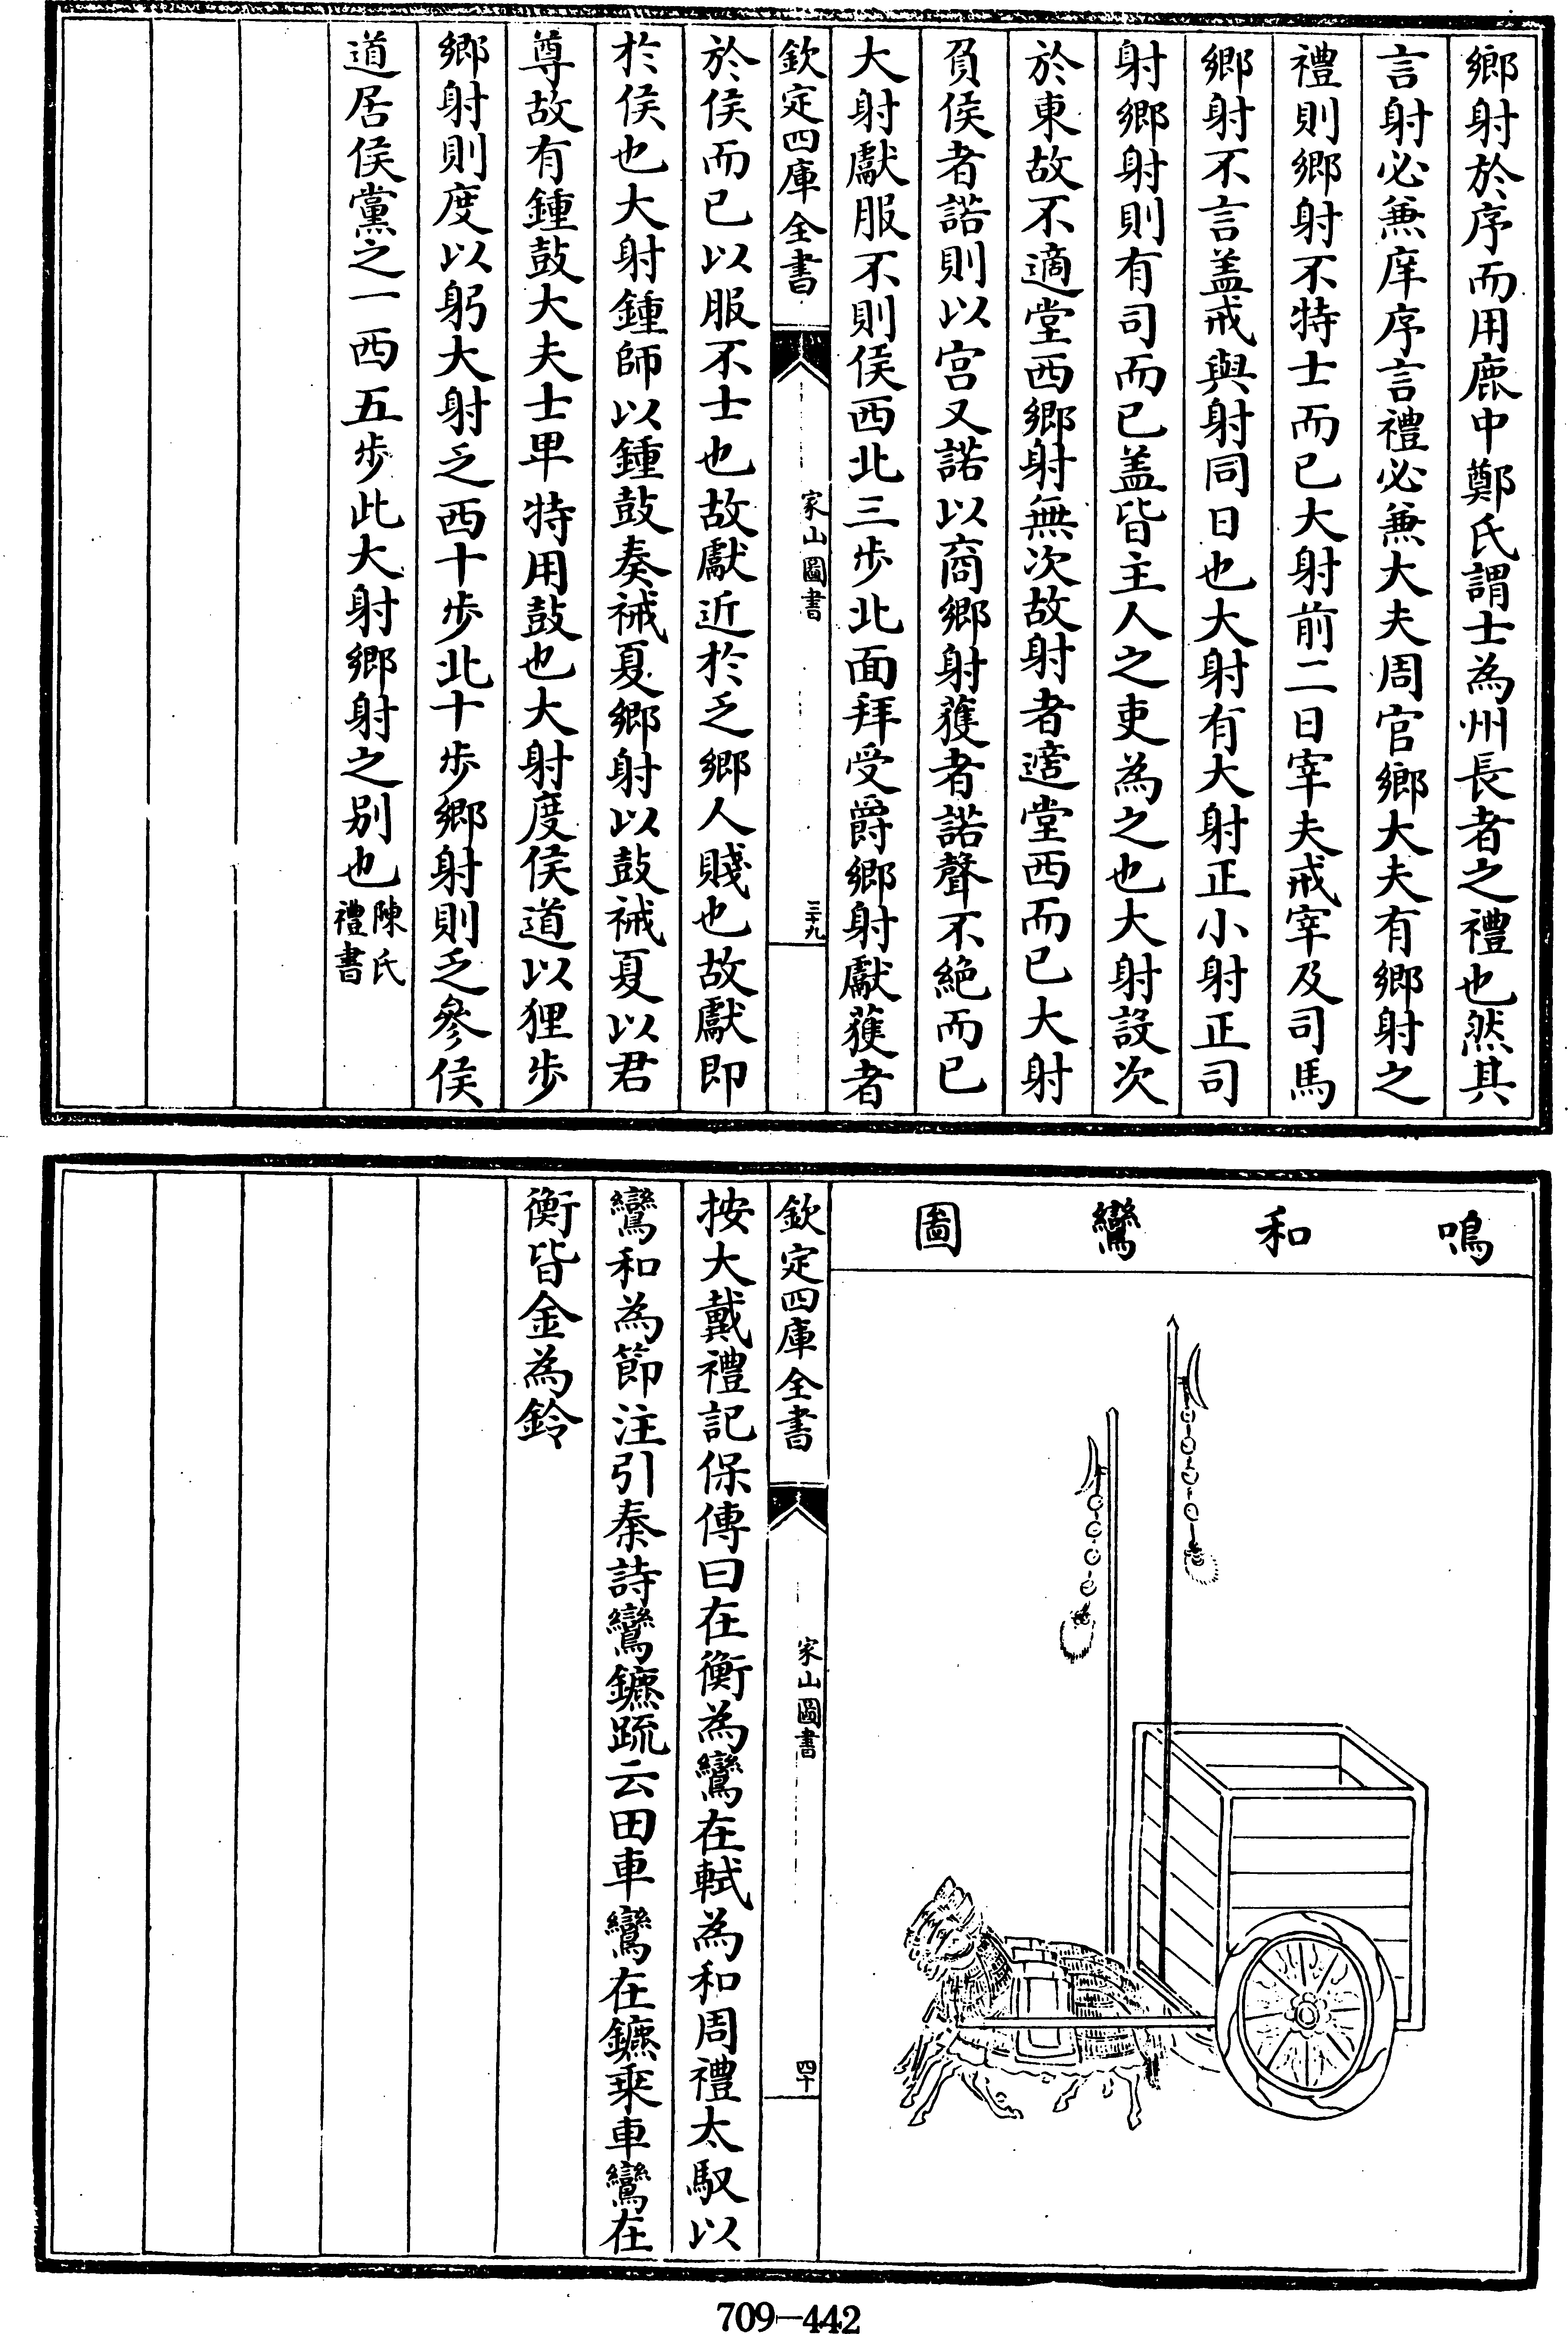 鄉射於序而用鹿中鄭氏謂士為州長者之禮也然其
言射必兼庠序言禮必兼大夫周官鄉大夫有鄉射之
禮則鄉射不特士而已大射前二日宰夫戒宰及司馬
鄉射不言盖戒與射同日也大射有大射正小射正司
射鄉射則有司而已盖皆主人之吏為之也大射設次
於東故不適堂西鄉射無次故射者適堂西而已大射
負侯者諾則以宫又諾以商鄉射獲者諾聲不絶而已
大射獻服不則侯西北三歩北面拜受爵鄉射獻獲者
欽定四庫全書
家山圖書
三十九
於侯而已以服不士也故獻近於乏鄉人賤也故獻即
於侯也大射鍾師以鍾鼓奏祴夏鄉射以鼓祴夏以君
尊故有鍾鼓大夫士卑特用鼓也大射度侯道以狸歩
鄉射則度以躬大射乏西十歩北十歩鄉射則乏參侯
道居侯黨之一西五歩此大射鄉射之别也陳氏禮書
鳴和鸞圖
欽定四庫全書
家山圖書
四十
按大戴禮記保傅曰在衡為鸞在軾為和周禮太馭以
鸞和為節注引秦詩鸞鑣疏云田車鸞在鑣乘車鸞在
衡皆金為鈴
709-442